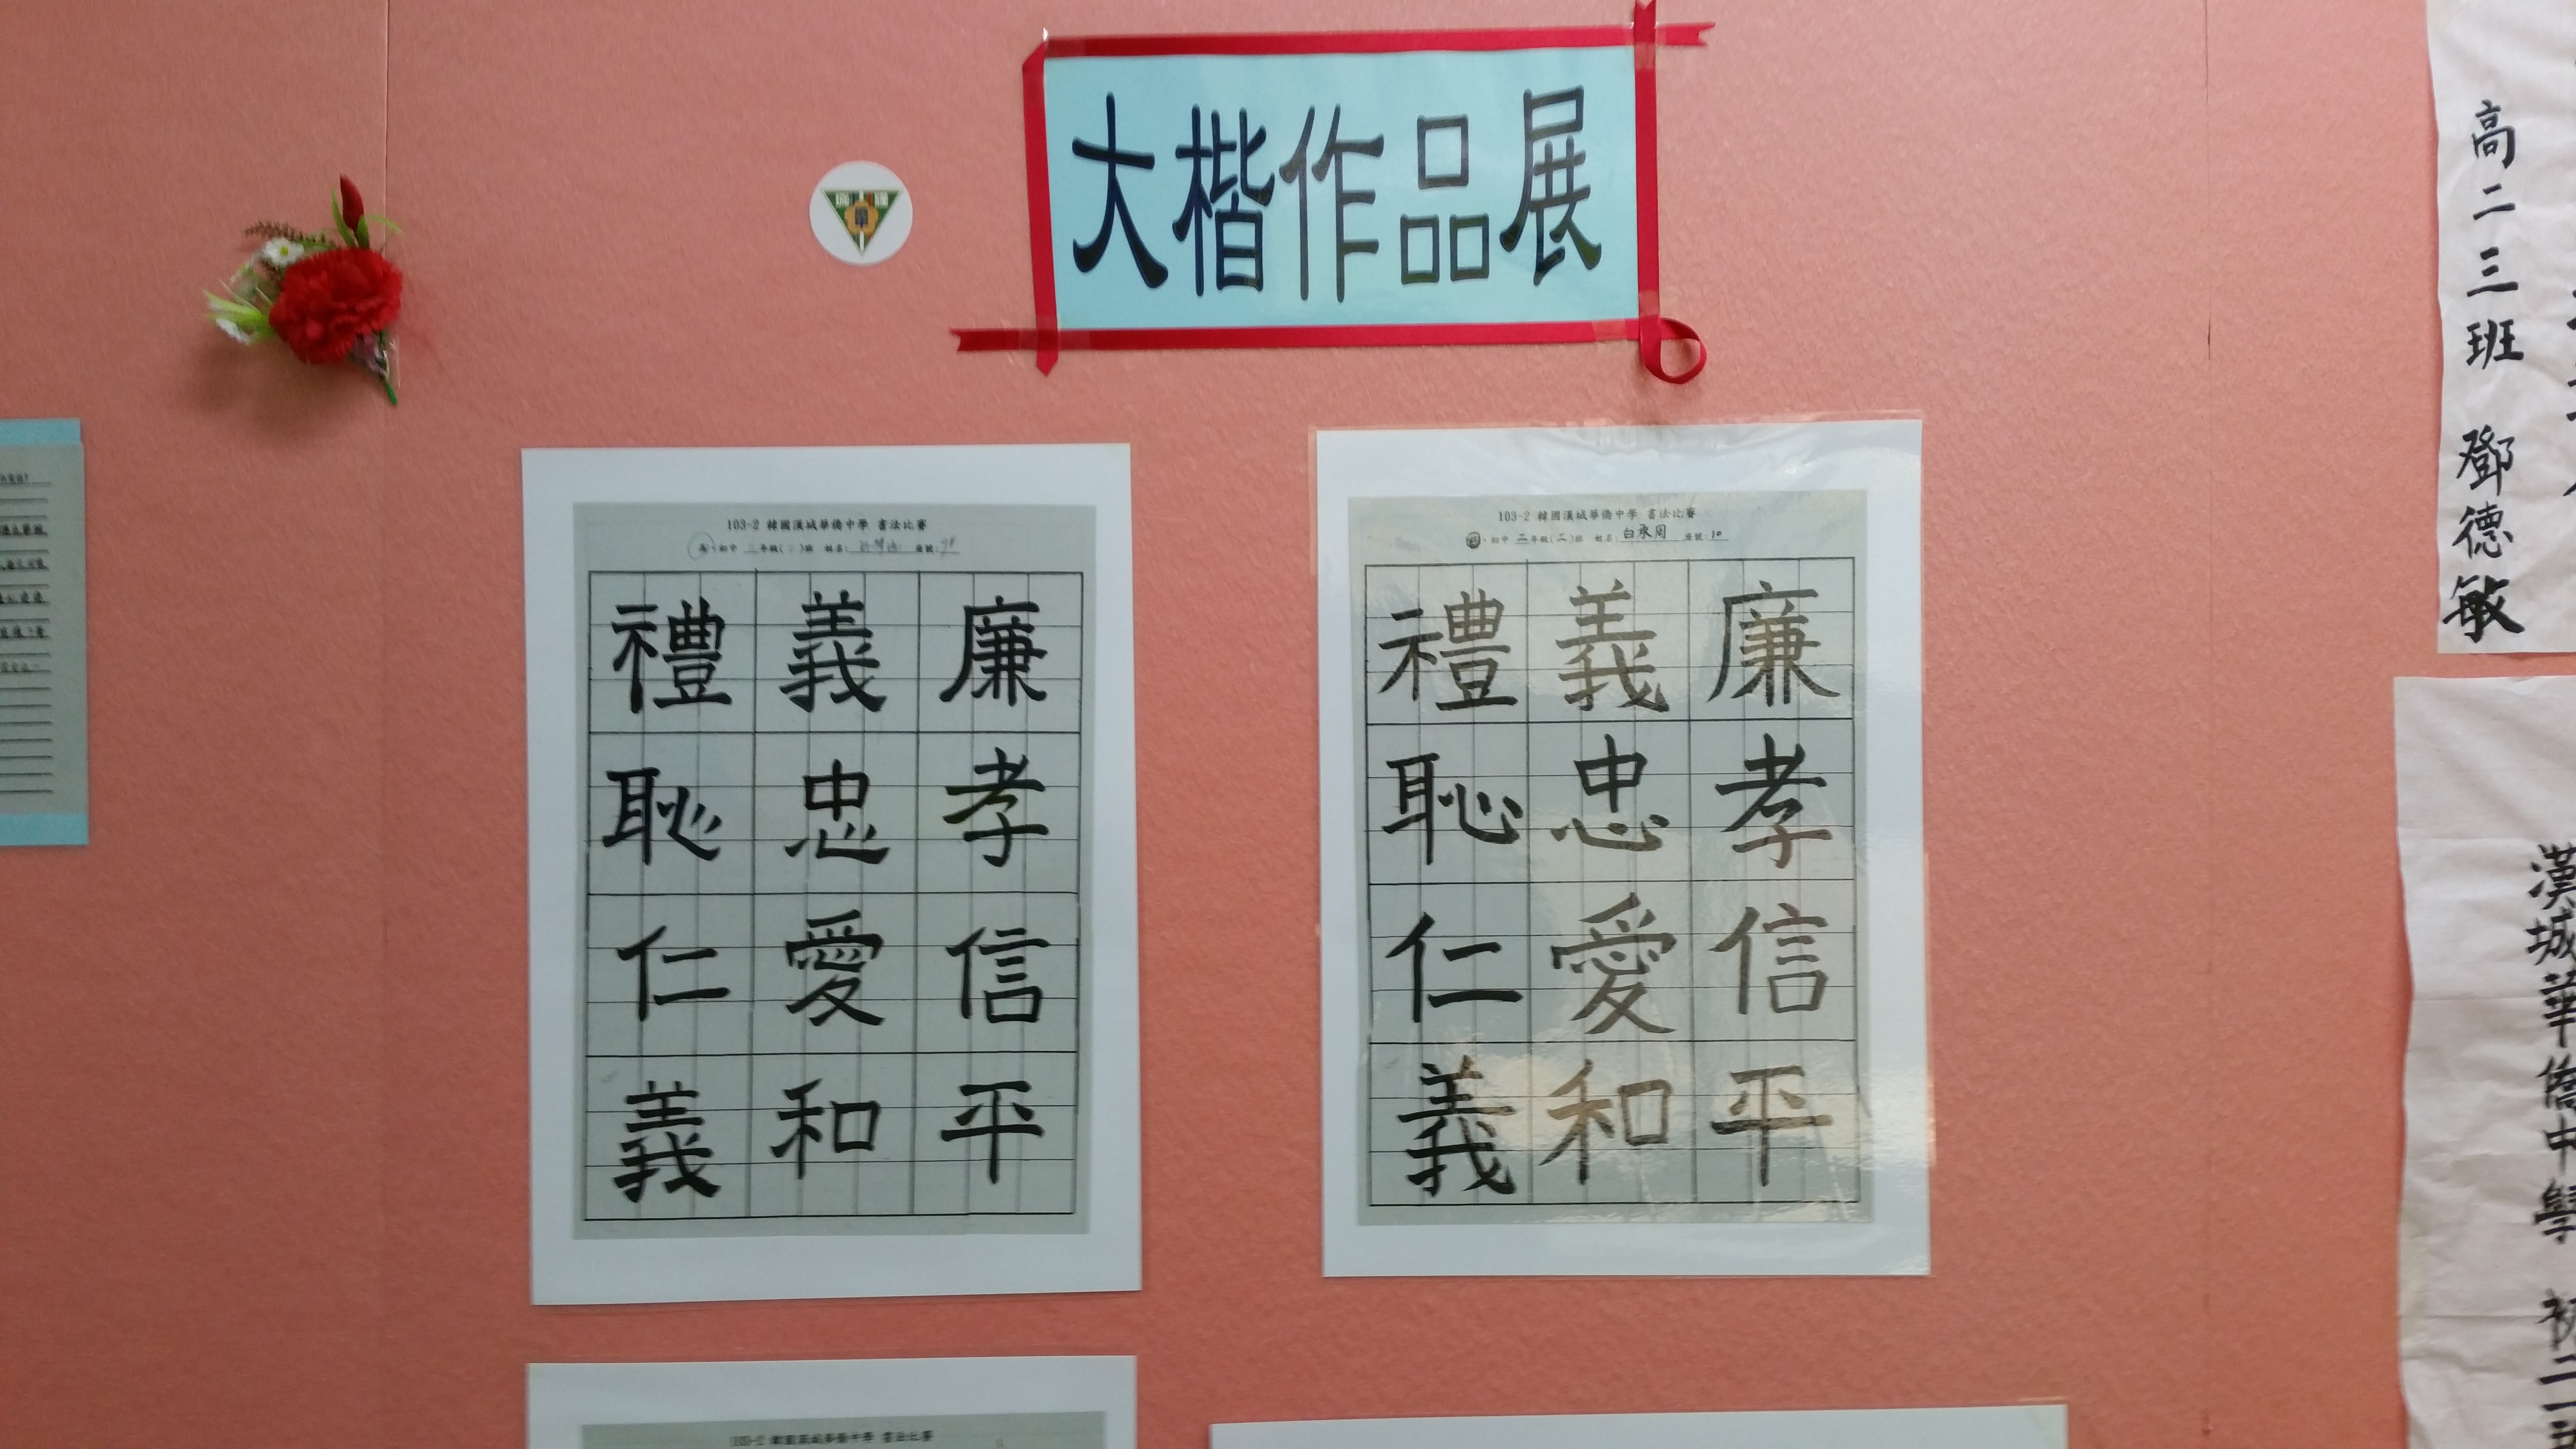 大楷作品展
103-2 韓國漢城華僑中學 書法比賽
禮義廉
恥忠孝
仁愛信
義和平
103-2 韓國漢城華僑中學 書法比賽
初中 二年級(二)班 姓名: 白承周 座號: 10
禮義廉
恥忠孝
仁愛信
義和平
高二三班 鄧德敏
漢城華僑中學 初二
103-2 韓國漢城華僑中學 書法比賽